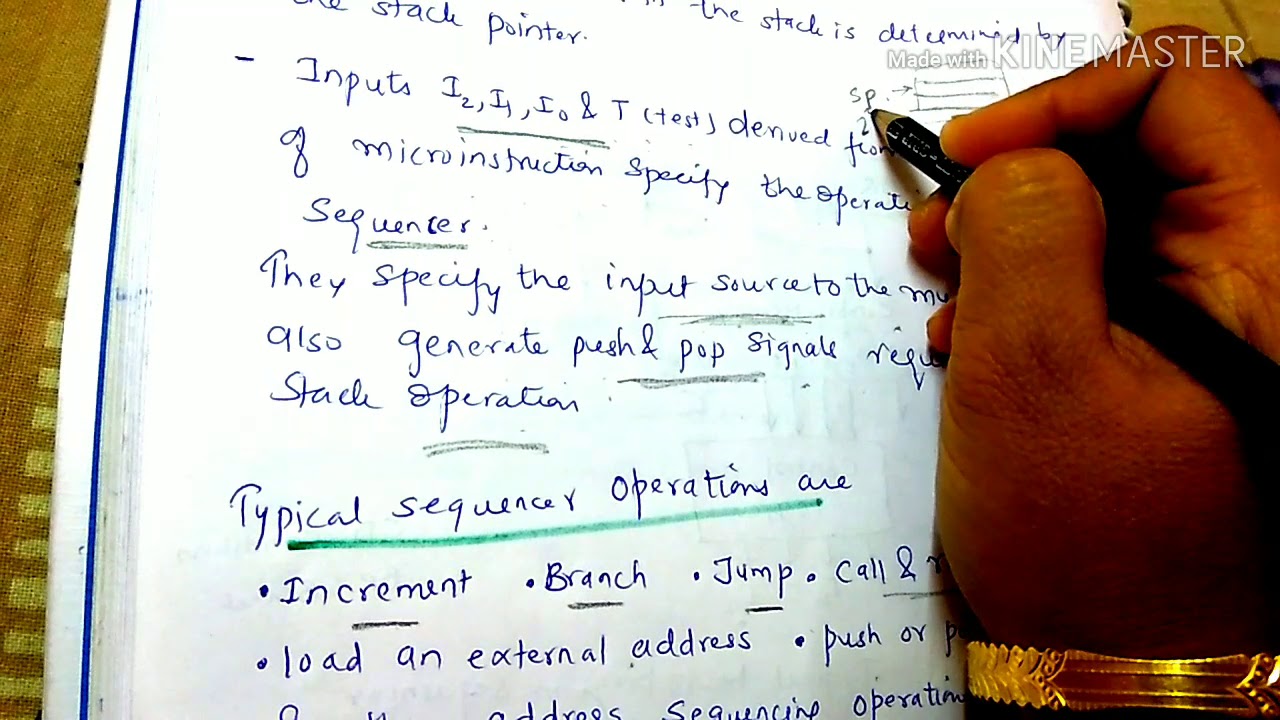 the stack pointer. the stack is determined by
Made with KINEMASTER
- Inputs I2, I1, I0 & T (test) derived
sp →
2
of microinstruction specify the
sequencer.
They specify the input source to the
also generate push & pop signals
Stack operation
Typical sequencer operations are
• Increment • Branch • Jump • Call &
• load an external address • push or
address sequencing